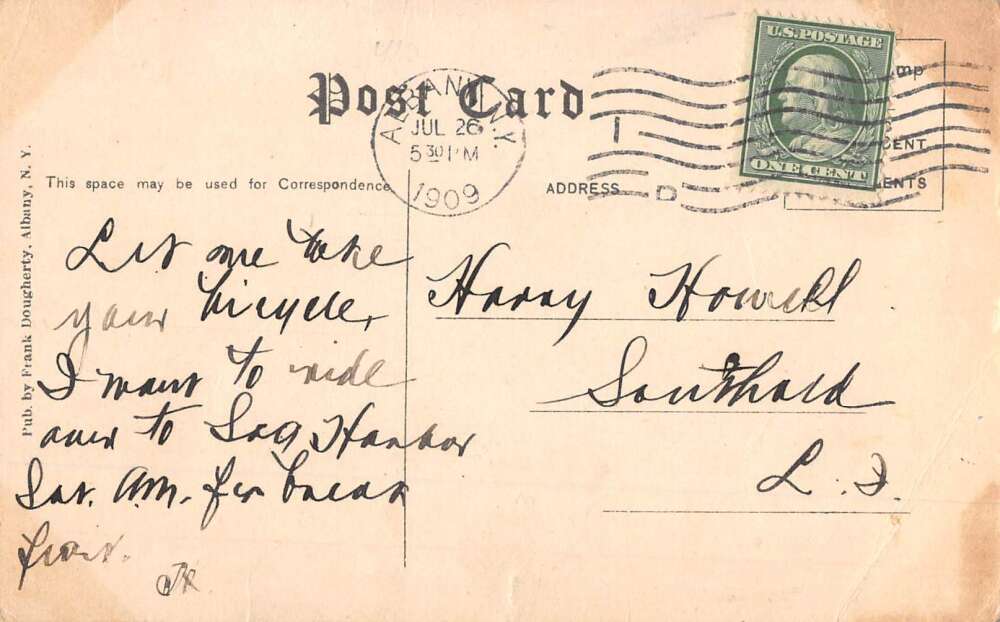 Post Card
ALBANY, N.Y.
JUL 26
5 30 PM
1909
U.S. POSTAGE
ONE CENT
Pub. by Frank Dougherty, Albany, N. Y.
This space may be used for Correspondence
ADDRESS
Let me take
your bicycle,
I want to ride
over to Sag Harbor
Sat. A.M. for break
fast.
Harry Howell
Southold
L. I.